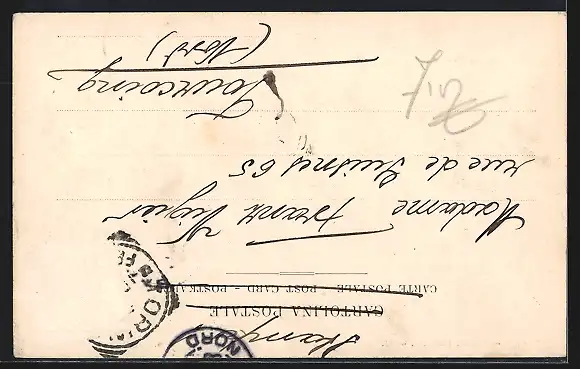 CARTOLINA POSTALE
CARTE POSTALE - POST CARD - POSTKARTE
Madame Frank Vigier
rue de Guisnes 65
Tourcoing
(Nord)
NORD